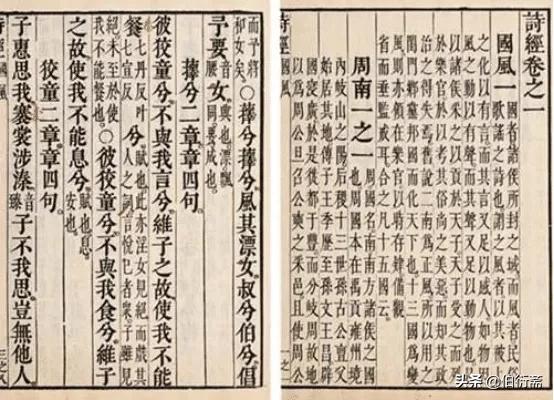 詩經卷之一
國風一 國者諸侯所封之域而風者民俗
歌謠之詩也謂之風者以其被上
之化以有言而其言又足以感人如物因
風之動以有聲而其聲又足以動物也是
以諸侯采之以貢於天子天子受之而列
於樂官於以考其俗尚之美惡而知其政
治之得失焉舊說二南為正風所以用之
閨門鄉黨邦國而化天下也十三國為變
風則亦領在樂官以時存肄備觀
省而垂監戒耳合之凡十五國云
周南一之一 周國名南南方諸侯之國
也周國本在禹貢雍州境
內岐山之陽后稷十三世孫古公亶父
始居其地傳子王季歷至孫文王昌辟
國寖廣於是徙都于豐而分岐周故地
以為周公旦召公奭之采邑且使周
詩經國風
而予將和女矣○蘀兮蘀兮風其漂女叔兮伯兮倡
予要音腰女興也漂飄同要成也
蘀兮二章章四句
彼狡童兮不與我言兮維子之故使我不能
餐七丹反叶七宣反兮賦也此亦淫女見絕而戲其人之詞言悅己者眾子雖見
絕未至於使我不能餐也○彼狡童兮不與我食兮維子
之故使我不能息兮賦也息安也
狡童二章章四句
子惠思我褰裳涉溱音臻子不我思豈無他人
頭条 @伯衍斋